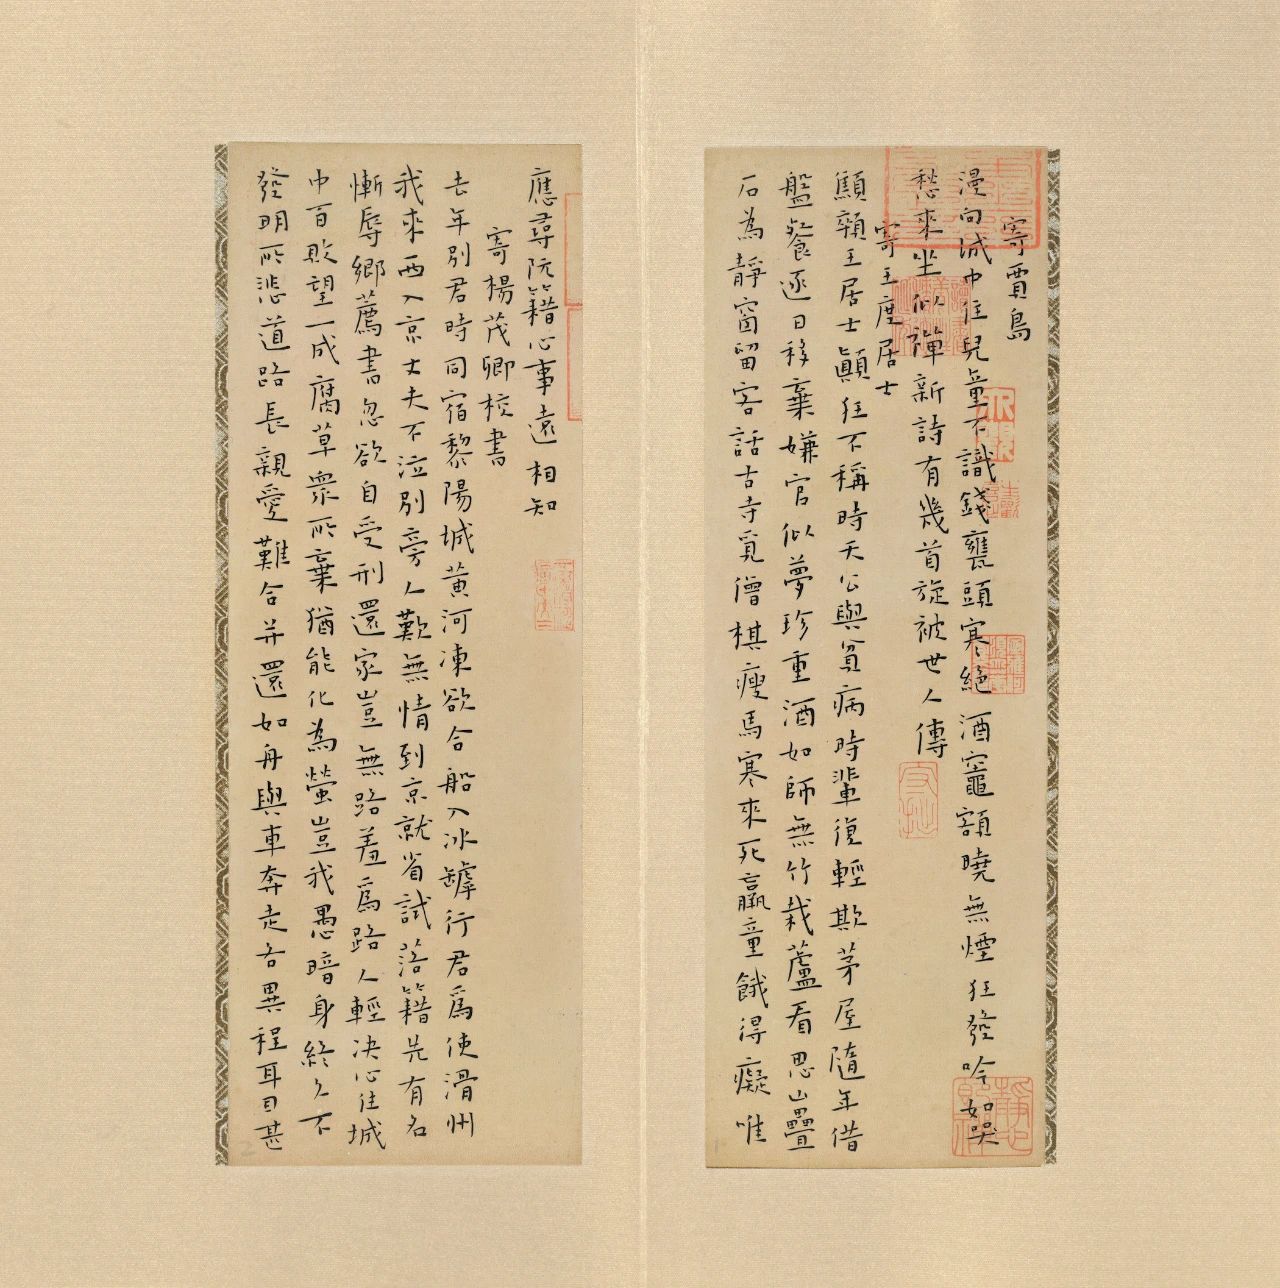 寄賈島
漫向城中住兒童不識錢甕頭寒絕酒竈額曉無煙狂發吟如哭
愁來坐似禪新詩有幾首旋被世人傳
寄王度居士
顦顇王居士顚狂不稱時天公與貧病時輩復輕欺茅屋隨年借
盤飡逐日移棄嫌官似夢珍重酒如師無竹栽蘆看思山疊
石為靜窗留客話古寺覓僧棋瘦馬寒來死羸童餓得癡唯
應尋阮籍心事遠相知
寄楊茂卿校書
去年別君時同宿黎陽城黃河凍欲合船入冰罅行君爲使滑州
我來西入京丈夫不泣別旁人歎無情到京就省試落籍先有名
慚辱鄉薦書忽欲自受刑還家豈無路羞爲路人輕决心住城
中百敗望一成腐草衆所棄猶能化為螢豈我愚暗身終久不
發明所悲道路長親愛難合并還如舟與車奔走各異程耳目甚